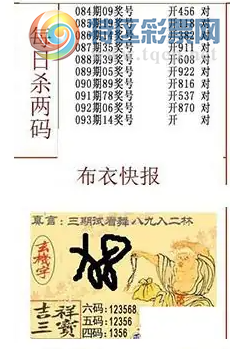 每日杀两码
084期09奖号 开456 对
085期
086期17奖号 开382 对
087期35奖号 开911 对
088期39奖号 开608 对
089期05奖号 开922 对
091期78奖号 开816 对
091期92奖号 开537 对
092期06奖号 开870 对
093期14奖号 开 对
布衣快报
真言：三期试看舞八九入二林
玄機字
吉祥
三寳
六码:123568
五码:12356
四码:1356